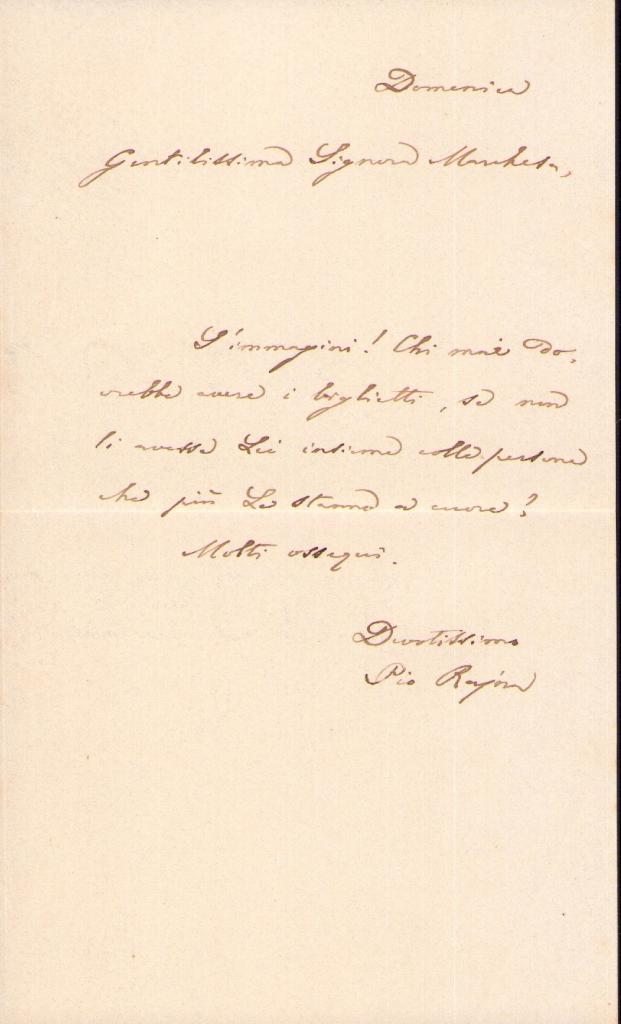 Domenica
Gentilissima Signora Marchesa,
S'immagini! Chi mai do-
vrebbe avere i biglietti, se non
li avesse Lei insieme colle persone
che più Le stanno a cuore?
Molti ossequi.
Devotissimo
Pio Rajna